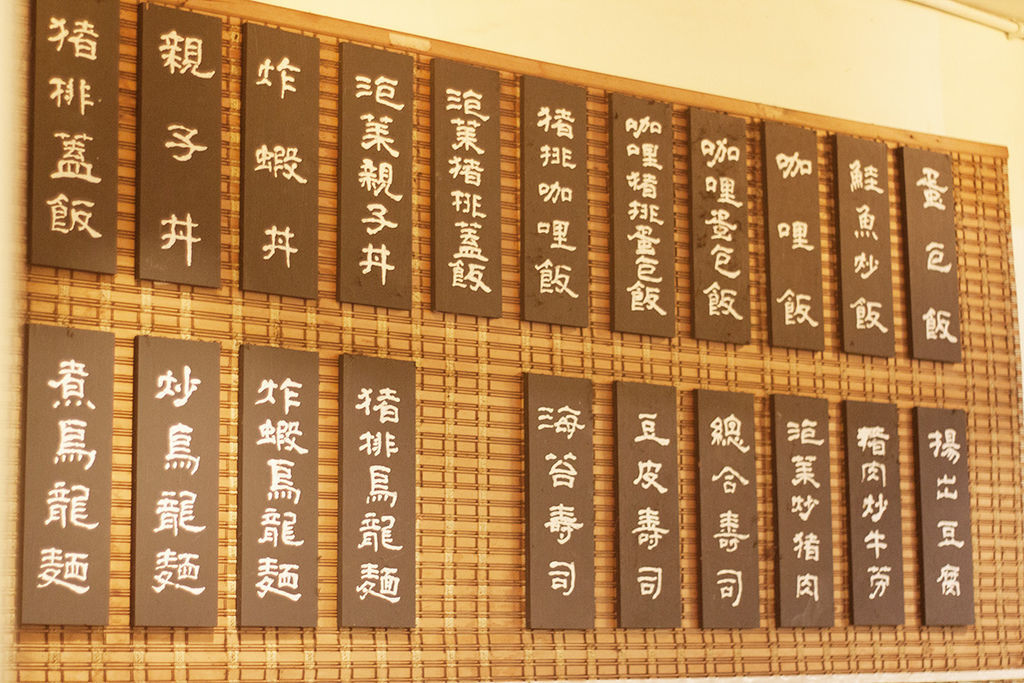 蛋包飯
鮭魚炒飯
咖哩飯
咖哩蛋包飯
咖哩猪排蛋包飯
猪排咖哩飯
泡菜猪排蓋飯
泡菜親子丼
炸蝦丼
親子丼
猪排蓋飯
揚出豆腐
猪肉炒牛蒡
泡菜炒猪肉
總合壽司
豆皮壽司
海苔壽司
猪排烏龍麵
炸蝦烏龍麵
炒烏龍麵
煮烏龍麵